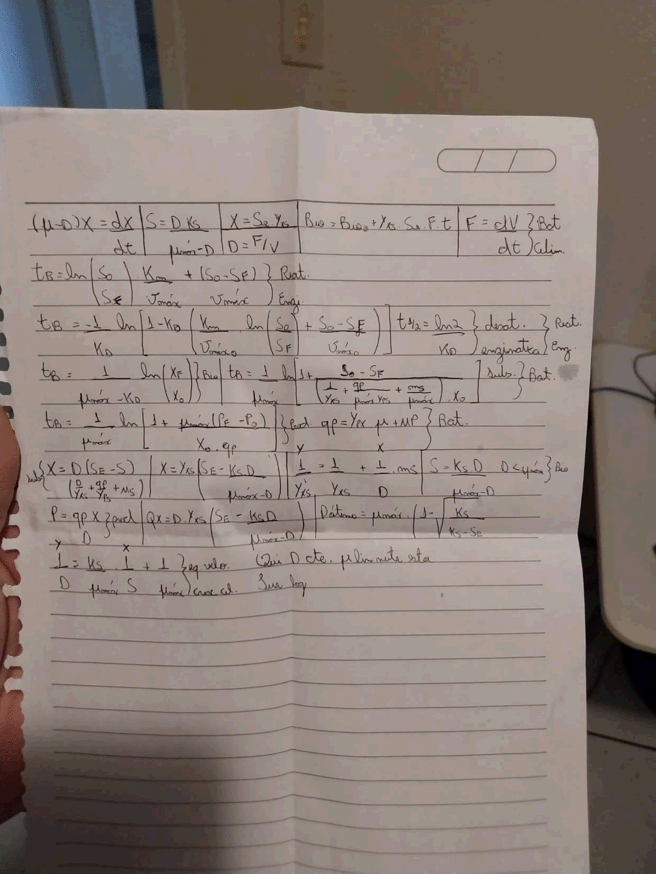 (μ-D)X = dX/dt | S = D Ks/μmáx-D | X = Se.Yxs | D = F/V | Bio = Bio₀ + Yxs.Se.F.t | F = dV/dt } Bat Alim
tB = ln(S0/SF) Km/vmáx + (S0-SF)/vmáx } Reat. Enz
tB = -1/KD ln[1-KD(Km/vmáx0 ln(S0/SF) + S0-SF/vmáx0)] t1/2 = ln2/KD } desat. enzimática } Reat. Enz.
tB = 1/μmáx-KD ln(XF/X0) } Bio | tB = 1/μmáx ln[1+ S0-SF/(1/Yxs + qp/μmáx.Yps + ms/μmáx).X0] } subs. } Bat.
tB = 1/μmáx ln[1 + μmáx(PF-P0)/X0.qp] } prod qp = Ypx μ + mp } Bat.
subs { X = D(SE-S)/(D/Yxs + qp/Yps + ms) | X = Yxs(SE - KsD/μmáx-D) | y 1/Yxs = 1/Yxs + x 1/D .ms | S = KsD/μmáx-D D<μmáx } Bio
P = qp X/D } prod | Qx = D.Yxs(SE - KsD/μmáx-D) | Dótimo = μmáx.(1-√Ks/Ks-SE
y 1/D = Ks/μmáx . x 1/S + 1/μmáx } eq